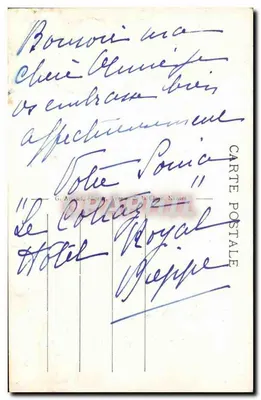 Bonsoir ma
chère
embrasse bien
affectueusement
Votre Sonia
"Le Cottage"
Hotel Royal
Dieppe
CARTE POSTALE